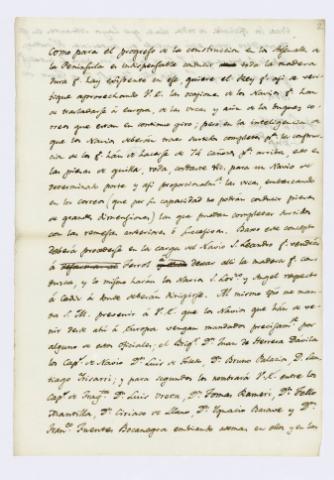 Como para el progreso de la construccion en los Arsenales de
la Peninsula es indispensable conducir toda la madera
dura q.e hay existente en ese, quiere el Rey q.e asi se veri-
fique aprovechando V.E. las ocasiones de los Navios q.e han
de trasladarse á Europa, de las Urcas y aun de los buques co-
rreos que estan en continuo giro; pero en la inteligencia de
que los Navios deberán traer surtidos completos p.a la construc-
cion de los q.e han de hacerse de 74 cañones p.a arriba, eso es
las piezas de quilla, roda, codaste &c. para un Navio de
determinado porte y asi proporcionalm.te las Urcas, embarcando
en los correos (que por su capacidad no podrán conducir piezas
de grandes dimensiones) las que puedan completar surtidos
con las remesas anteriores ó sucesivas. Baxo este concepto
deberá procederse en la carga del Navio S. Leandro q.e vendrá
á Ferrol dexar alli la madera q.e con-
duzca, y lo mismo harán los Navios S. Lor.zo y Angel respecto
á Cadiz á donde deberán dirigirse. Al mismo tpo me man-
da S.M. prevenir á V.E. que los Navios que han de ve-
nir desde ahi á Europa vengan mandados precisam.te por
alguno de estos oficiales, el Brig.r D.n Juan de Herrera Davila
los Cap.s de Navio D.n Luis de D.n Bruno Palacio D.n San-
tiago Irisarri; y para segundos los nombrará V.E. entre los
Cap.s de Frag.ta D.n Luis Ureta, D.n Tomas Rameri, D.n Tello
Mantilla, D.n Ciriaco de Llano, D.n Ignacio y D.n
Fran.co Fuentes Bocanegra embiando ademas en ellos y en los